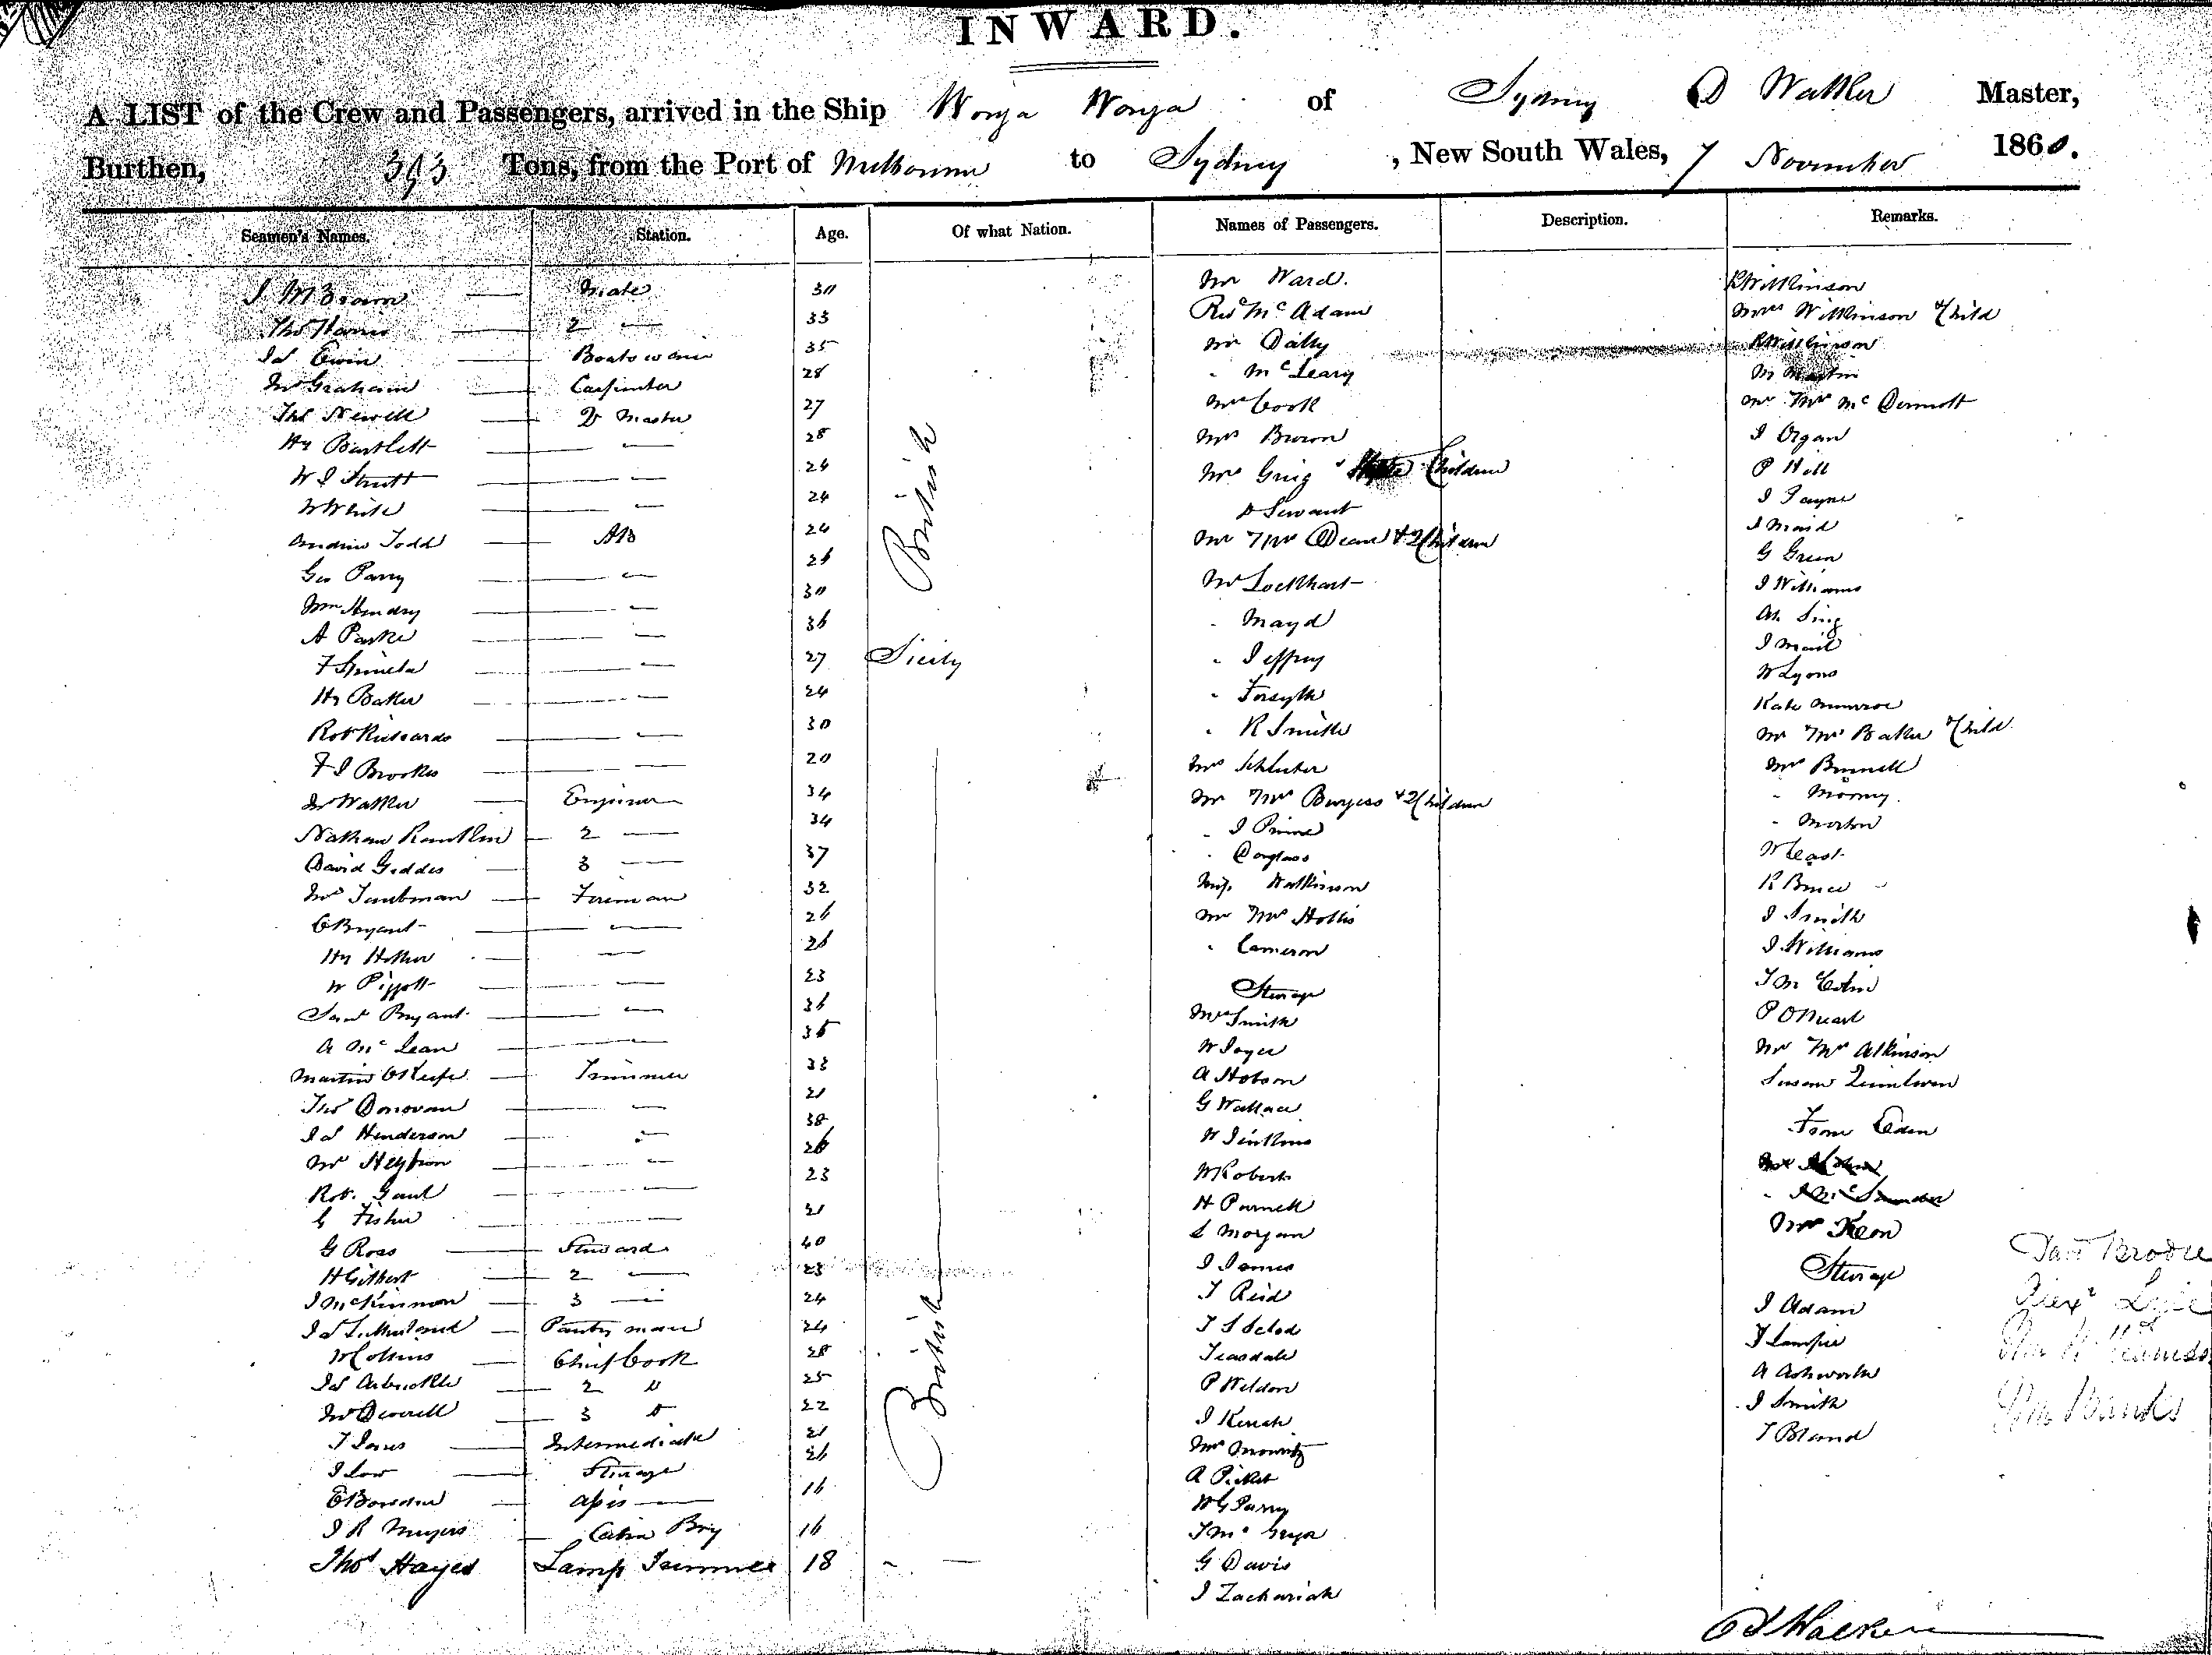 INWARD.
A LIST of the Crew and Passengers, arrived in the Ship Wonga Wonga of Sydney D Walker Master,
Burthen, 393 Tons, from the Port of Melbourne to Sydney, New South Wales, 7 November 1860.
Seamen's Names. Station. Age. Of what Nation. Names of Passengers. Description. Remarks.
J McBrown — Mate 30
Thos Harris — 2 — 33
Jas Ewin — Boatswain 35
Jno Graham — Carpenter 28
Thos Newell — Qr Master 27
Hy Bartlett — — 28
W J Strutt — — 24
W White — — 24
Andrew Todd — AB 24
Geo Parry — — 26
Wm Hendry — — 30
A Parke — — 36
F — — 27 Sicily
Hy Baker — — 24
Robt Richards — — 30
F J Brookes — — 20
Jno Walker — Engineer 34
Nathan — 2 — 34
David Geddes — 3 — 37
Jno Taubman — Fireman 32
C Bryant — — 26
Hy — — 26
W Piggott — — 23
Saml Bryant — — 36
A McLean — — 35
Martin O'Keefe — Trimmer 33
Thos Donovan — — 21
Jas Henderson — — 38
— — 26
Robt Gaul — — 23
G Fisher — — 21
G Ross — Steward 40
H Gilbert — 2 — 23
J McKinnon — 3 — 24
Jas Sutherland — Pantryman 24
W Collins — Chief Cook 28
Jas Arbuckle — 2 " 25
Jno Deverell — 3 " 22
T Jones — Intermediate 21
J Low — Steerage 26
E Bowden — Assis — 16
J R Meyers — Cabin Boy 16
Thos Hayes Lamp Trimmer 18 " —
British
British
Mr Ward.
Revd McAdam
Mr Dally
" McLeary
Mrs Cook
Mrs Brown
Mrs Greig & Children
& Servant
Mr & Mrs Dean & 2 Children
Mr Lockhart
" Mayd
" Jeffrey
" Forsyth
" R Smith
Mrs Schluter
Mr & Mrs Burgess & 2 Children
" J Prince
" Douglass
Miss Watkinson
Mr & Mrs Hollis
" Cameron
Steerage
Mrs Smith
W Joyce
A Hobson
G Wallace
W Jenkins
W Roberts
H Parnell
S Morgan
J James
T Reid
T S
Teasdale
P Weldon
J
Mrs
A Picket
W G Parry
J McGregor
G Davis
J Zachariah
R Wilkinson
Mrs Wilkinson & Child
R Wilkinson
M Martin
Mr & Mrs McDermott
J Organ
P Hill
J Payne
J Maid
G Green
J Williams
Ah Sing
J
W Lyons
Kate Munroe
Mr & Mrs Baker & Child
Mr Bunnell
" Mooney
" Morton
W East
R Bruce
J Smith
J Williams
P O'Neal
Mr & Mrs Atkinson
Susan Quinlivan
From Eden
Mrs Keon
Steerage
J Adam
A Ashworth
J Smith
T Bland
Brodie
Alexr
Wm
Wm Banks
D Walker